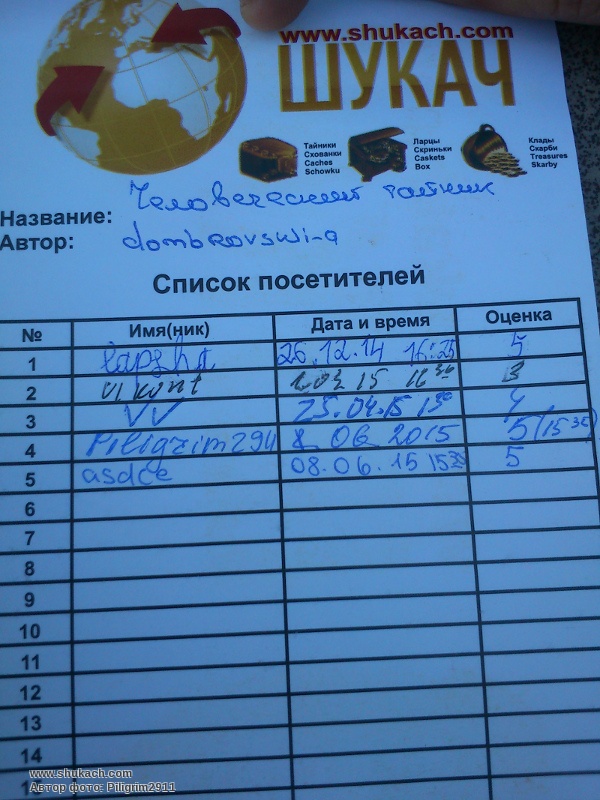 www.shukach.com
ШУКАЧ
Тайники
Схованки
Caches
Schowku
Ларцы
Скриньки
Caskets
Box
Клады
Скарби
Treasures
Skarby
Название: Человеческий тайник
Автор: dombrovswi-a
Список посетителей
№ Имя(ник) Дата и время Оценка
1 lapsha 26.12.14 16:25 5
2 vikont 15 3
3 VV 25.04.15 13 30 4
4 Piligrim2911 8 06 2015 5 (15 35)
5 asdce 08.06.15 15 35 5
6
7
8
9
10
11
12
13
14
15
www.shukach.com
Автор фото: Piligrim2911